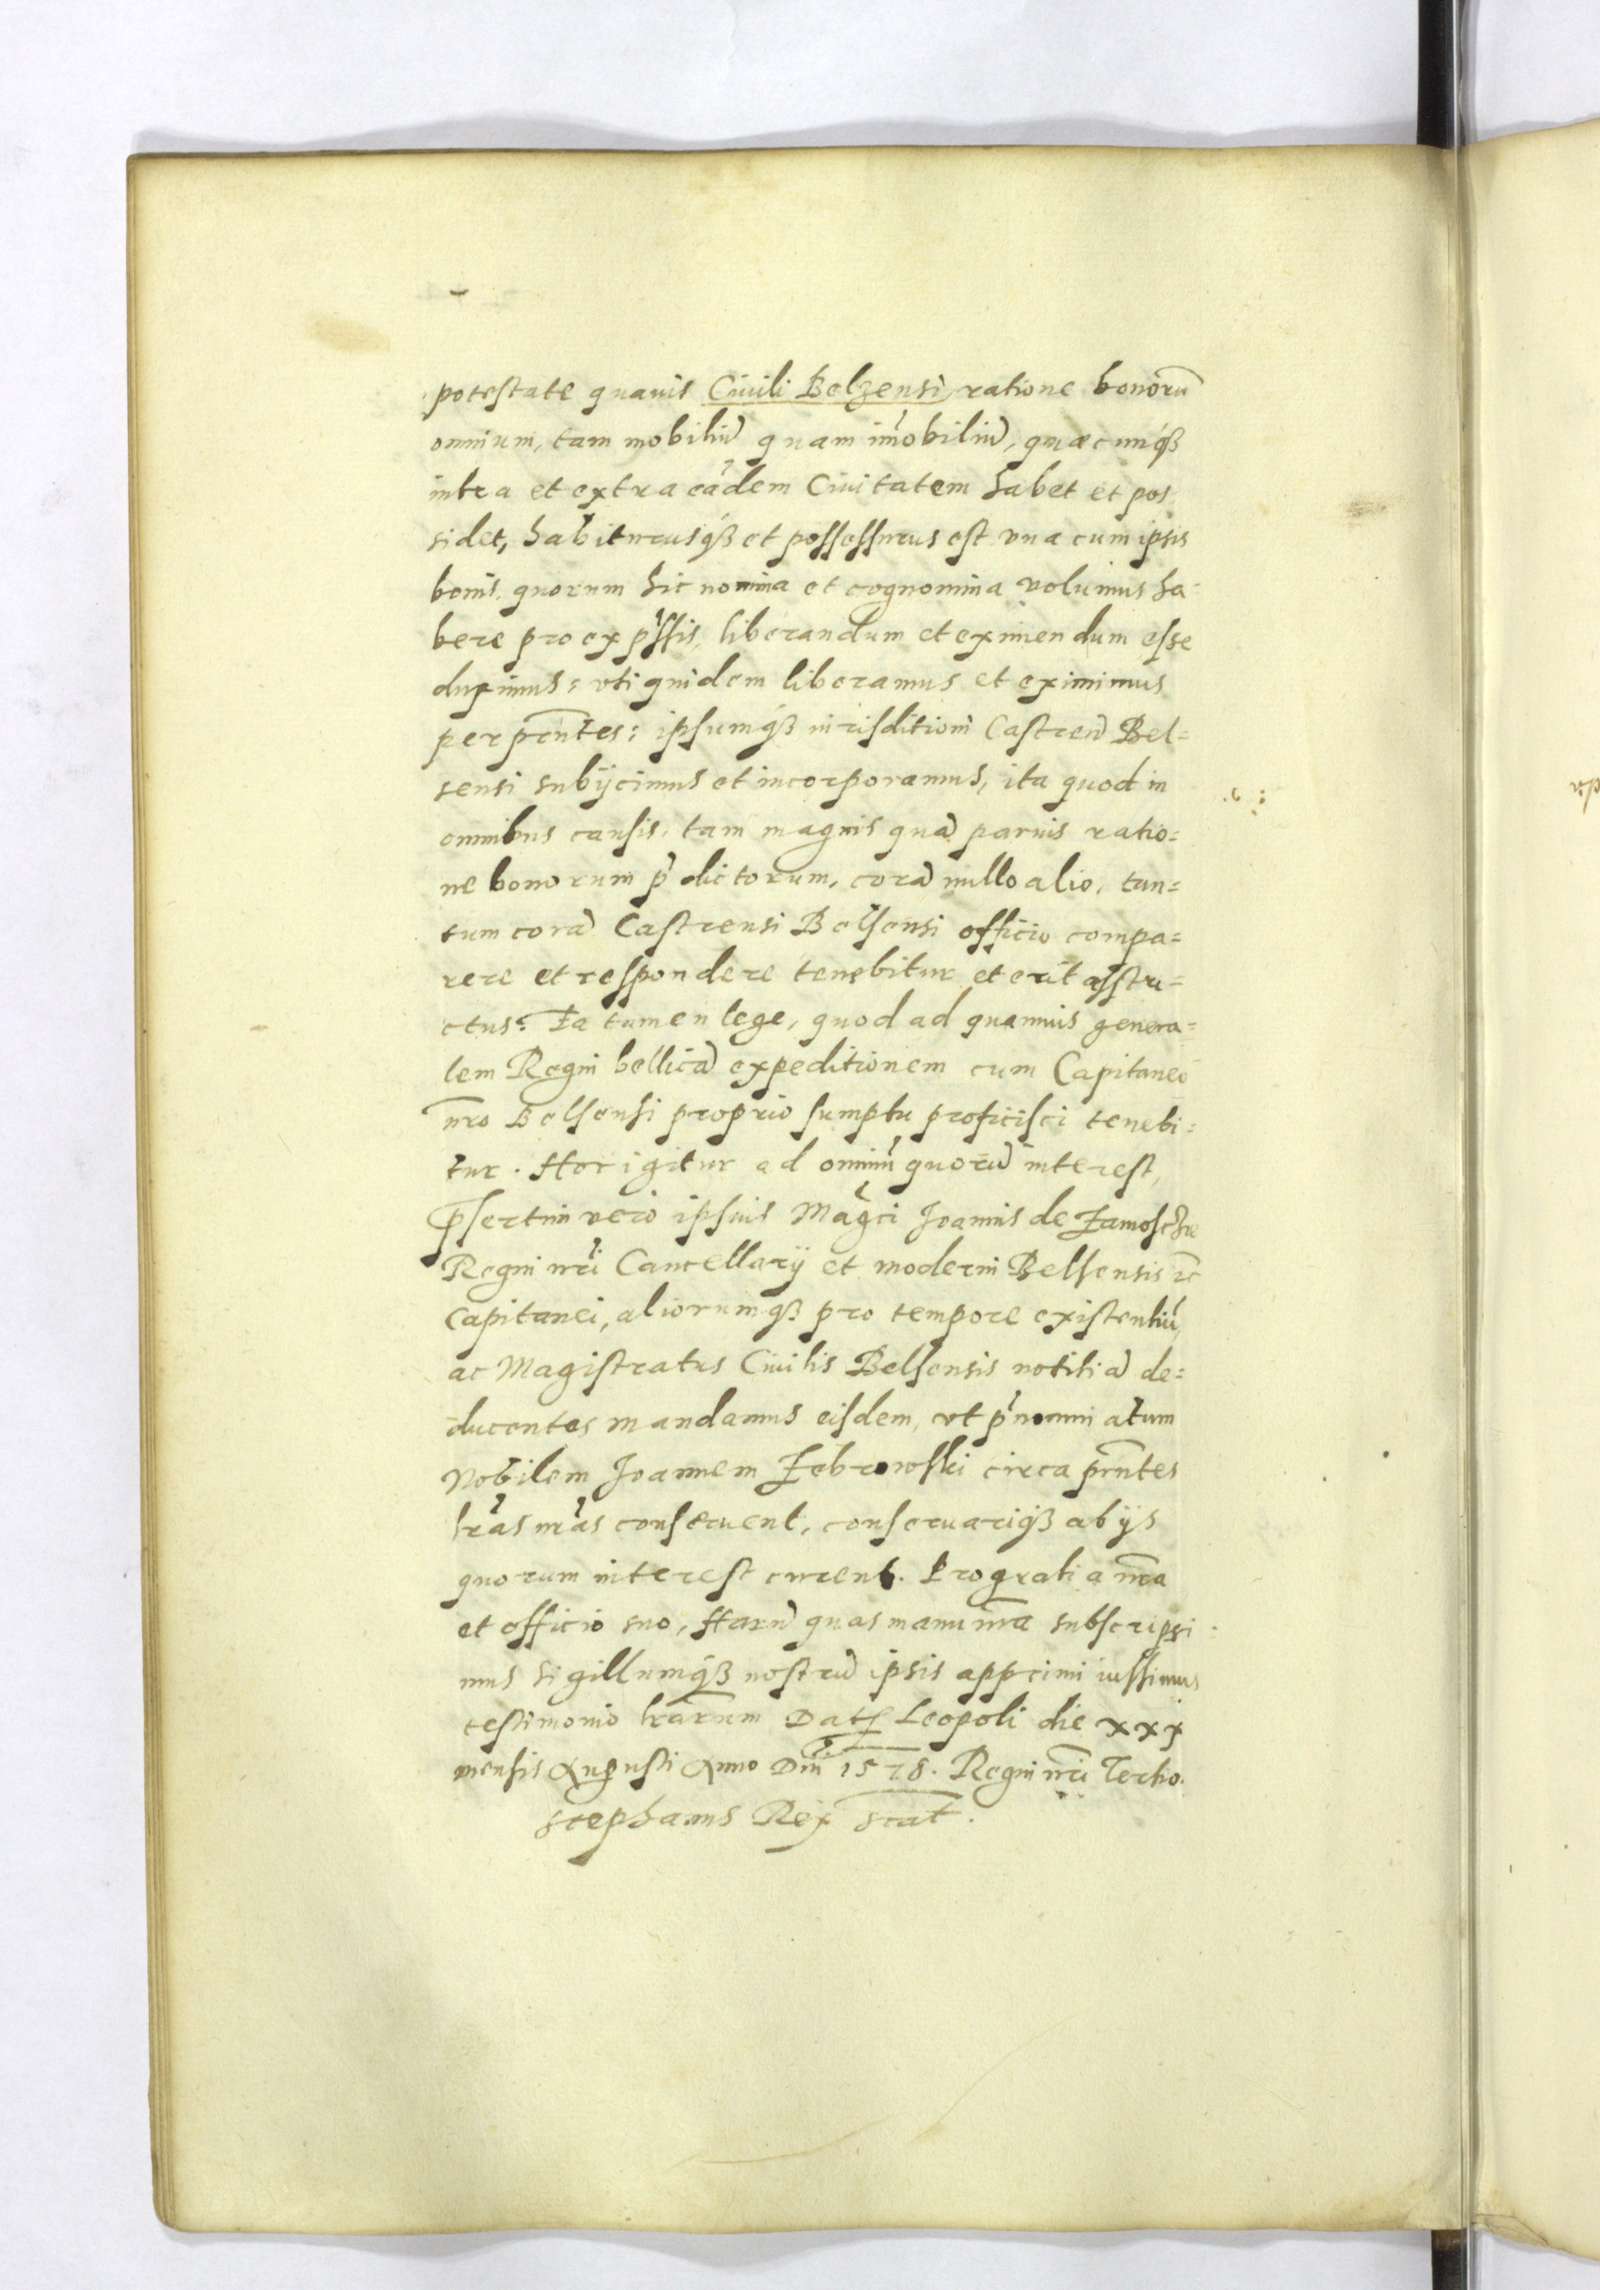 potestate quauis Ciuili Belzensi ratione bonorũ
omnium, tam mobiliũ quam im̃obiliũ, quæcunq́ꝫ
intra et extra eãdem Ciuitatem habet et pos
sidet, habiturusq́ꝫ et possessurus est vna cum ipsis
bonis, quorum hic nomina et cognomina volumus ha-
bere pro exp̃ssis, liberandum et eximendum esse
duximus: vti quidem liberamus et eximimus
per prñtes: ipsumq́ꝫ iurisditioni Castreñ Bel=
sensi subijcimus et incorporamus, ita quod in
omnibus causis, tam magnis quã paruis ratio=
ne bonorum p̃dictorum, corã nullo alio, tan=
tum corã Castrensi Belsensi officio compa=
rere et respondere tenebitur et erit asstri=
ctus. Ea tamen lege, quod ad quamuis genera=
lem Regni bellicã expeditionem cum Capitaneo
nr̃o Belsensi proprio sumptu proficisci tenebi=
tur. Hoc igitur ad omniũ quorũ interest,
p̃sertim vero ipsius Mag̃ci Joannis de Zamoschie
Regni nr̃i Cancellarij et moderni Belsensis ꝛc̃
Capitanei, aliorumqꝫ pro tempore existentiũ,
ac Magistratus Ciuilis Belsensis notitiã de=
ducentes mandamus eisdem, vt p̃nominatum
Nobilem Joannem Zebrowski circa prñtes
lr̃as nr̃as conseruent, conseruariqꝫ ab ijs
quorum interest curent. Pro gratia nr̃a
et officio suo, Harũ quas manu nr̃a subscripsi-
mus sigillumq́ꝫ nostrũ ipsis apprimi iussimus
testimonio lr̃arum Datꝭ Leopoli die xxx
mensis Augusti Anno Dñi 1578. Regni nr̃i Tertio.
Stephanus Rex scat̃.